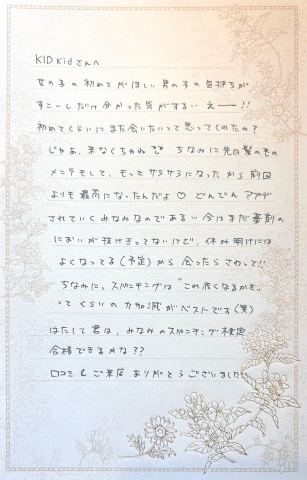 KID kidさんへ
女の子の初めてがほしい男の子の気持ちが
すこーしだけ分かった気がするい えー!!
初めてくらいにまた会いたいって思ってくれたの?
じゃあ、来なくちゃね ちなみに先日髪の毛の
メンテをして、もっとサラサラになったから前回
よりも最高になったんだよ♡ どんどんアプデ
されていくみなみなのである 今はまだ薬剤の
においが抜けきってないけど、休み明けには
よくなってる(予定)から会ったらさわって!!
ちなみに、スパンキングは"これ痛くなるかも"
ってくらいの力加減がベストです(笑)
はたして君は、みなみのスパンキング検定
合格できるかな??
口コミ&ご来店ありがとうございました